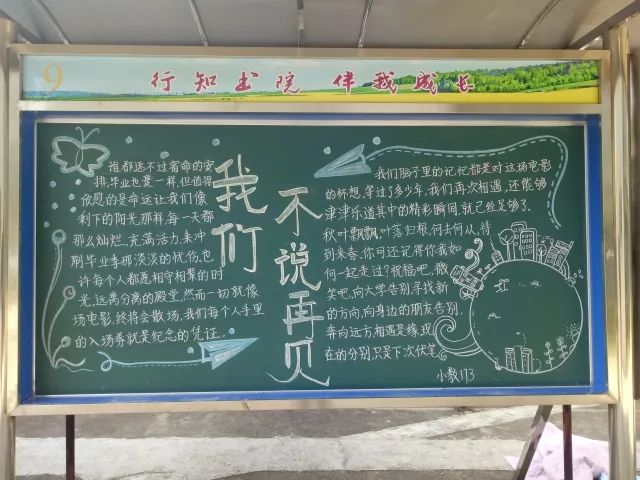 9
行知书院 伴我成长
谁都逃不过宿命的安
排,毕业也是一样,但值得
欣慰的是命运让我们像
剩下的阳光那样,每一天都
那么灿烂,充满活力,来冲
刷毕业季那淡淡的忧伤,也
许每个人都愿相守相聚的时
光,远离分离的殿堂,然而一切就像
场电影,终将会散场,我们每个人手里
的入场券就是纪念的凭证.
我们
不说再见
我们脑子里的记忆都是对这场电影
的怀想,等过了多少年,我们再次相遇,还能够
津津乐道其中的精彩瞬间,就已经足够了.
秋叶飘飘,叶落归根,何去何从,待
到来春,你可还记得你我如
何一起走过?祝福吧,微
笑吧,向大学告别寻找新
的方向,向身边的朋友告别,
奔向远方相遇是缘,现
在的分别,只是下次伏笔
小教173